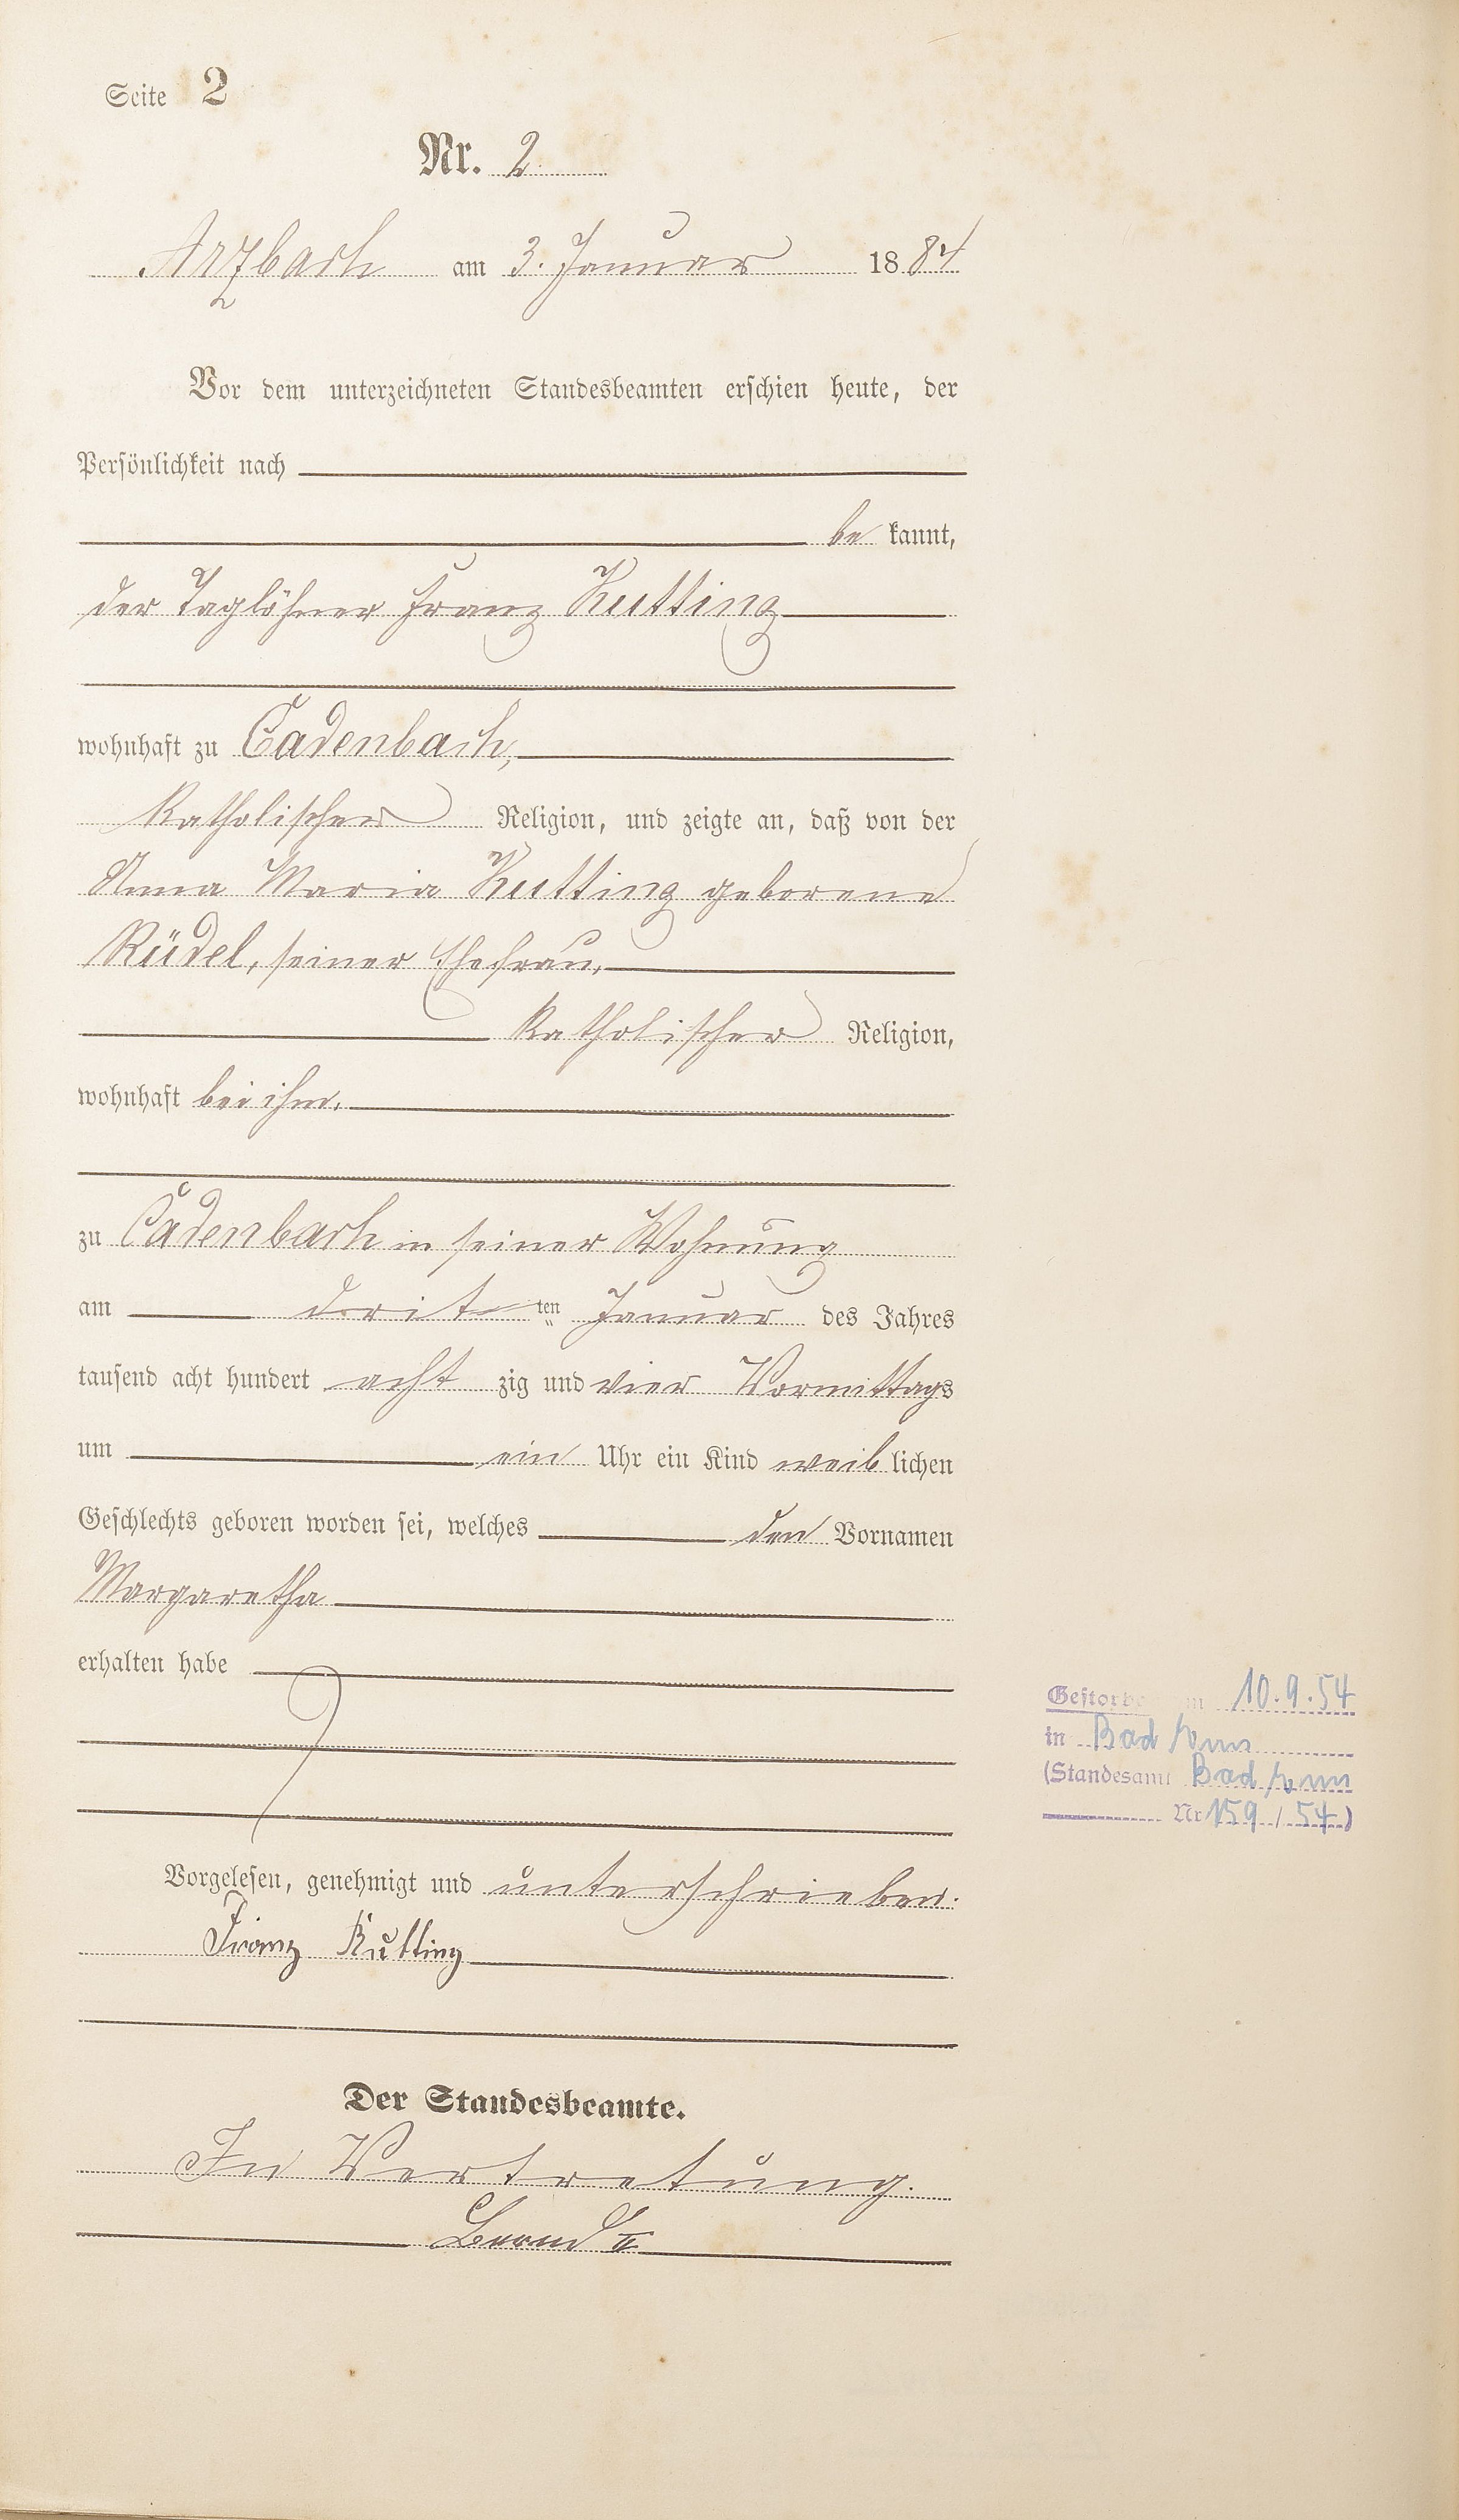 Seite 2
Nr. 2
Arzbach am 3. Januar 1884
Vor dem unterzeichneten Standesbeamten erschien heute, der
Persönlichkeit nach
be kannt,
der Taglöhner Franz Kutting
wohnhaft zu Cadenbach,
katholischer Religion, und zeigte an, daß von der
Anna Maria Kutting geborene
Rüdel, seiner Ehefrau,
katholischer Religion,
wohnhaft bei ihm,
zu Cadenbach in seiner Wohnung
am drit ten Januar des Jahres
tausend acht hundert acht zig und vier Vormittags
um ein Uhr ein Kind weib lichen
Geschlechts geboren worden sei, welches den Vornamen
Margaretha
erhalten habe
Gestorben am 10.9.54
in Bad Ems
(Standesamt Bad Ems
Nr 159 / 54)
Vorgelesen, genehmigt und unterschrieben.
Franz Kutting
Der Standesbeamte.
In Vertretung.
II